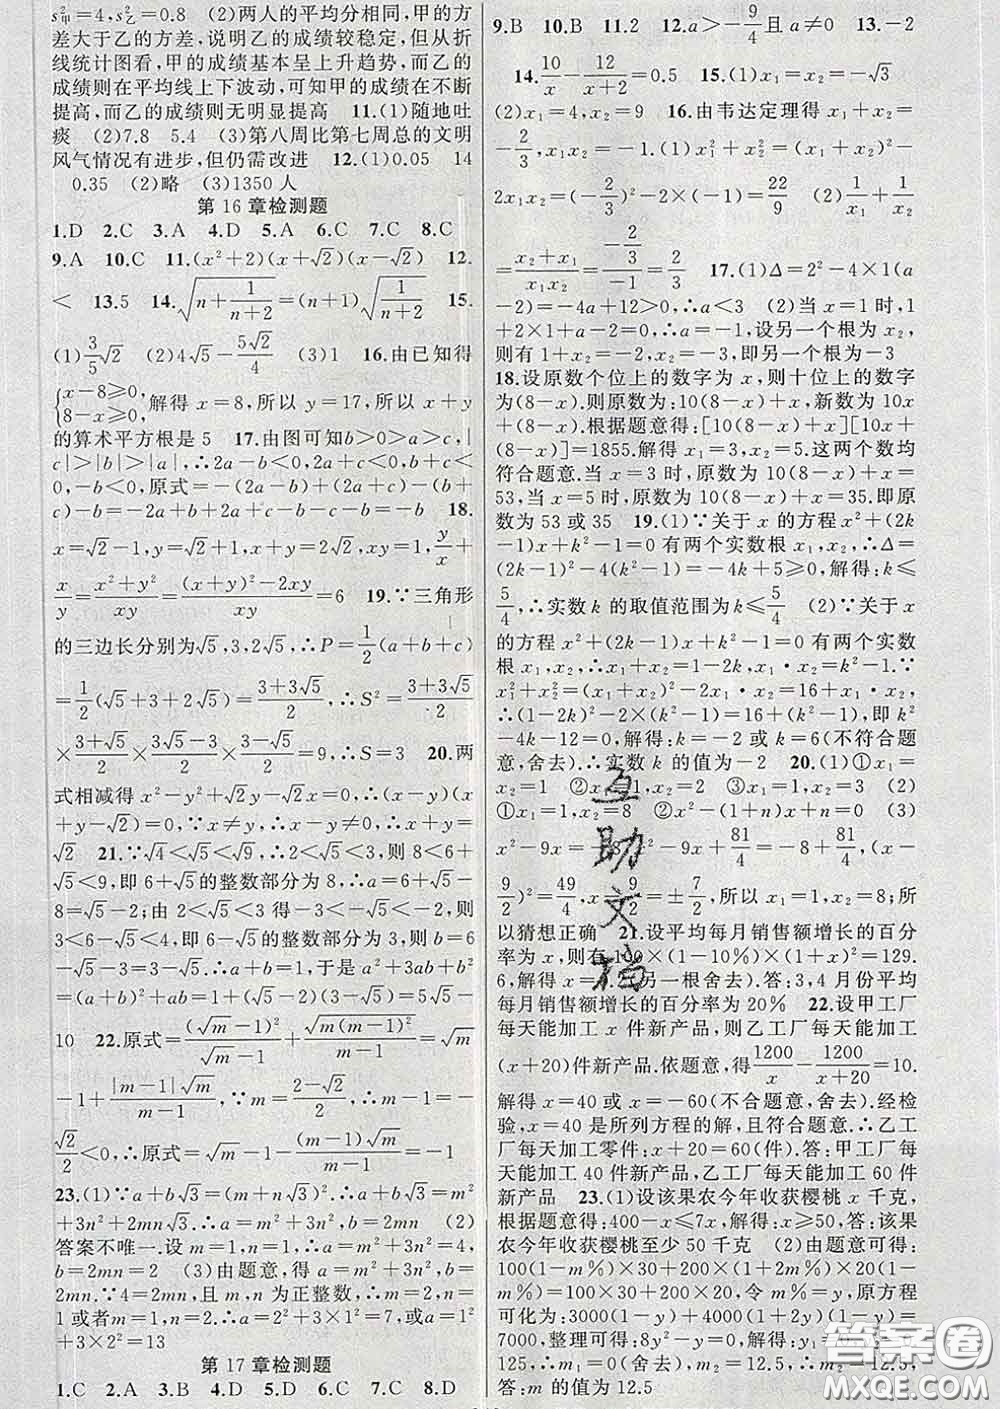 s²甲=4,s²乙=0.8 (2)两人的平均分相同,甲的方
差大于乙的方差,说明乙的成绩较稳定,但从折
线统计图看,甲的成绩基本呈上升趋势,而乙的
成绩则在平均线上下波动,可知甲的成绩在不断
提高,而乙的成绩则无明显提高 11.(1)随地吐
痰 (2)7.8 5.4 (3)第八周比第七周总的文明
风气情况有进步,但仍需改进 12.(1)0.05 14
0.35 (2)略 (3)1350 人
第 16 章检测题
1.D 2.C 3.A 4.D 5.A 6.C 7.C 8.C
9.A 10.C 11.(x²+2)(x+√2)(x-√2) 12.
< 13.5 14.√(n+1/(n+2))=(n+1)√(1/(n+2)) 15.
(1)3/5√2 (2)4√5-5√2/4 (3)1 16.由已知得
{x-8≥0, 8-x≥0, 解得 x=8,所以 y=17,所以 x+y
的算术平方根是 5 17.由图可知b>0>a>c,|
c|>|b|>|a|,∴2a-b<0,2a+c<0,c-b<
0,-b<0,∴原式=-(2a-b)+(2a+c)-(b-
c)-b=-2a+b+2a+c-b-c-b=-b 18.
x=√2-1,y=√2+1,x+y=2√2,xy=1,y/x+
x/y=(x²+y²)/xy=((x+y)²-2xy)/xy=6 19.∵三角形
的三边长分别为√5,3,2√5,∴P=1/2(a+b+c)
=1/2(√5+3+2√5)=(3+3√5)/2,∴S²=(3+3√5)/2
×(3+√5)/2×(3√5-3)/2×(3-√5)/2=9,∴S=3 20.两
式相减得 x²-y²+√2y-√2x=0,∴(x-y)(x+y-√2)=0.∵x≠y,∴x-y≠0,∴x+y=
√2 21.∵√4<√5<√9,∴2<√5<3,则 8<6+
√5<9,即 6+√5的整数部分为 8,∴a=6+√5-
8=√5-2;由 2<√5<3 得-3<-√5<-2,则
3<6-√5<4,即 6-√5的整数部分为 3,则 b=6
-√5-3=3-√5.∴a+b=1,于是 a²+3ab+b²=
(a+b)²+ab=1+(√5-2)(3-√5)=5√5-
10 22.原式=(√m-1)²/(√m-1)+√(m(m-1)²)/(m-1)=√m
-1+|m-1|√m/(m-1).∵m=(2-√2)/2,∴m-1=-
√2/2<0,∴原式=√m-1-(m-1)√m/(m-1)=-1
23.(1)∵a+b√3=(m+n√3)²,∴a+b√3=m²
+3n²+2mn√3.∴a=m²+3n²,b=2mn (2)
答案不唯一.设 m=1,n=1,∴a=m²+3n²=4,
b=2mn=2 (3)由题意,得 a=m²+3n²,b=
2mn.∵4=2mn,且 m,n 为正整数,∴m=2,n=
1 或者m=1,n=2,∴a=2²+3×1²=7,或 a=1²
+3×2²=13
第 17 章检测题
1.C 2.A 3.B 4.D 5.D 6.C 7.C 8.D
9.B 10.B 11.2 12.a>-9/4 且 a≠0 13.-2
14.10/x-12/(x+2)=0.5 15.(1)x₁=x₂=-√3
(2)x₁=4,x₂=9 16.由韦达定理得 x₁+x₂=
-2/3,x₁x₂=-1.(1)x₁²+x₂²=(x₁+x₂)²-
2x₁x₂=(-2/3)²-2×(-1)=22/9 (2)1/x₁+1/x₂
=(x₂+x₁)/(x₁x₂)=(-2/3)/(-1)=2/3 17.(1)Δ=2²-4×1(a
-2)=-4a+12>0,∴a<3 (2)当 x=1 时,1
+2×1+a-2=0,∴a=-1,设另一个根为 x₂,
则有 1+x₂=-2,x₂=-3,即另一个根为-3
18.设原数个位上的数字为 x,则十位上的数字
为(8-x).则原数为:10(8-x)+x,新数为 10x
+(8-x).根据题意得:[10(8-x)+x][10x+
(8-x)]=1855.解得 x₁=3,x₂=5.这两个数均
符合题意.当 x=3 时,原数为 10(8-x)+x=
53,当 x=5 时,原数为 10(8-x)+x=35.即原
数为 53 或 35 19.(1)∵关于 x 的方程 x²+(2k
-1)x+k²-1=0 有两个实数根 x₁,x₂,∴Δ=
(2k-1)²-4(k²-1)=-4k+5≥0,解得:k≤
5/4,∴实数 k 的取值范围为 k≤5/4 (2)∵关于 x
的方程 x²+(2k-1)x+k²-1=0 有两个实数
根 x₁,x₂,∴x₁+x₂=1-2k,x₁·x₂=k²-1.∵
x₁²+x₂²=(x₁+x₂)²-2x₁·x₂=16+x₁·x₂,
∴(1-2k)²-2×(k²-1)=16+(k²-1),即 k²
-4k-12=0,解得:k=-2 或 k=6(不符合题
意,舍去).∴实数 k 的值为-2 20.(1)①x₁=
x₂=1 ②x₁=1,x₂=2 ③x₁=1,x₂=3 (2)
①x₁=1,x₂=8 ②x²-(1+n)x+n=0 (3)
x²-9x=-8,x²-9x+81/4=-8+81/4,(x-
9/2)²=49/4,x-9/2=±7/2,所以 x₁=1,x₂=8;所
以猜想正确 21.设平均每月销售额增长的百分
率为 x,则有 100×(1-10%)(1+x)²=129.
6,解得 x=(另一根舍去).答:3,4 月份平均
每月销售额增长的百分率为 20% 22.设甲工厂
每天能加工 x 件新产品,则乙工厂每天能加工
(x+20)件新产品.依题意,得1200/x-1200/(x+20)=10.
解得 x=40 或 x=-60(不合题意,舍去).经检
验,x=40 是所列方程的解,且符合题意.∴乙工
厂每天加工零件:x+20=60(件).答:甲工厂每
天能加工 40 件新产品,乙工厂每天能加工 60 件
新产品 23.(1)设该果农今年收获樱桃 x 千克,
根据题意得:400-x≤7x,解得:x≥50,答:该果
农今年收获樱桃至少 50 千克 (2)由题意可得:
100(1-m%)×30+200×(1+2m%)×20(1-
m%)=100×30+200×20,令 m%=y,原方程
可化为:3000(1-y)+4000(1+2y)(1-y)=
7000,整理可得:8y²-y=0,解得:y₁=0,
125,∴m₁=0(舍去),m₂=12.5,∴m₂=12.5,
答:m 的值为 12.5
互助文档
答案圈
MXQE.COM